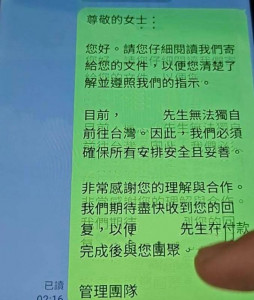 尊敬的女士：
您好。請您仔細閱讀我們寄
給您的文件，以便您清楚了
解並遵照我們的指示。
目前， 先生無法獨自
前往台灣。因此，我們必須
確保所有安排安全且妥善。
非常感謝您的理解與合作。
我們期待盡快收到您的回
復，以便 先生在付款
完成後與您團聚。
管理團隊
已讀
02:16